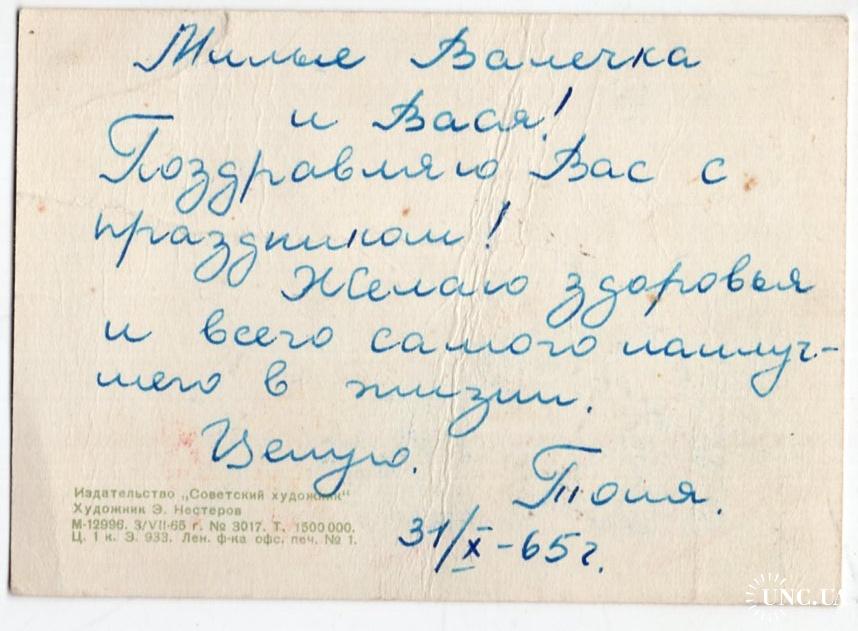 Милые Валечка
и Вася!
Поздравляю Вас с
праздником!
Желаю здоровья
и всего самого наилуч-
шего в жизни.
Целую.
Тоня.
31/X-65г.
Издательство „Советский художник“
Художник Э. Нестеров
М-12996. 3/VII-65 г. № 3017. Т. 1500000.
Ц. 1 к. Э. 933. Лен. ф-ка офс. печ. № 1.
UNC.UA